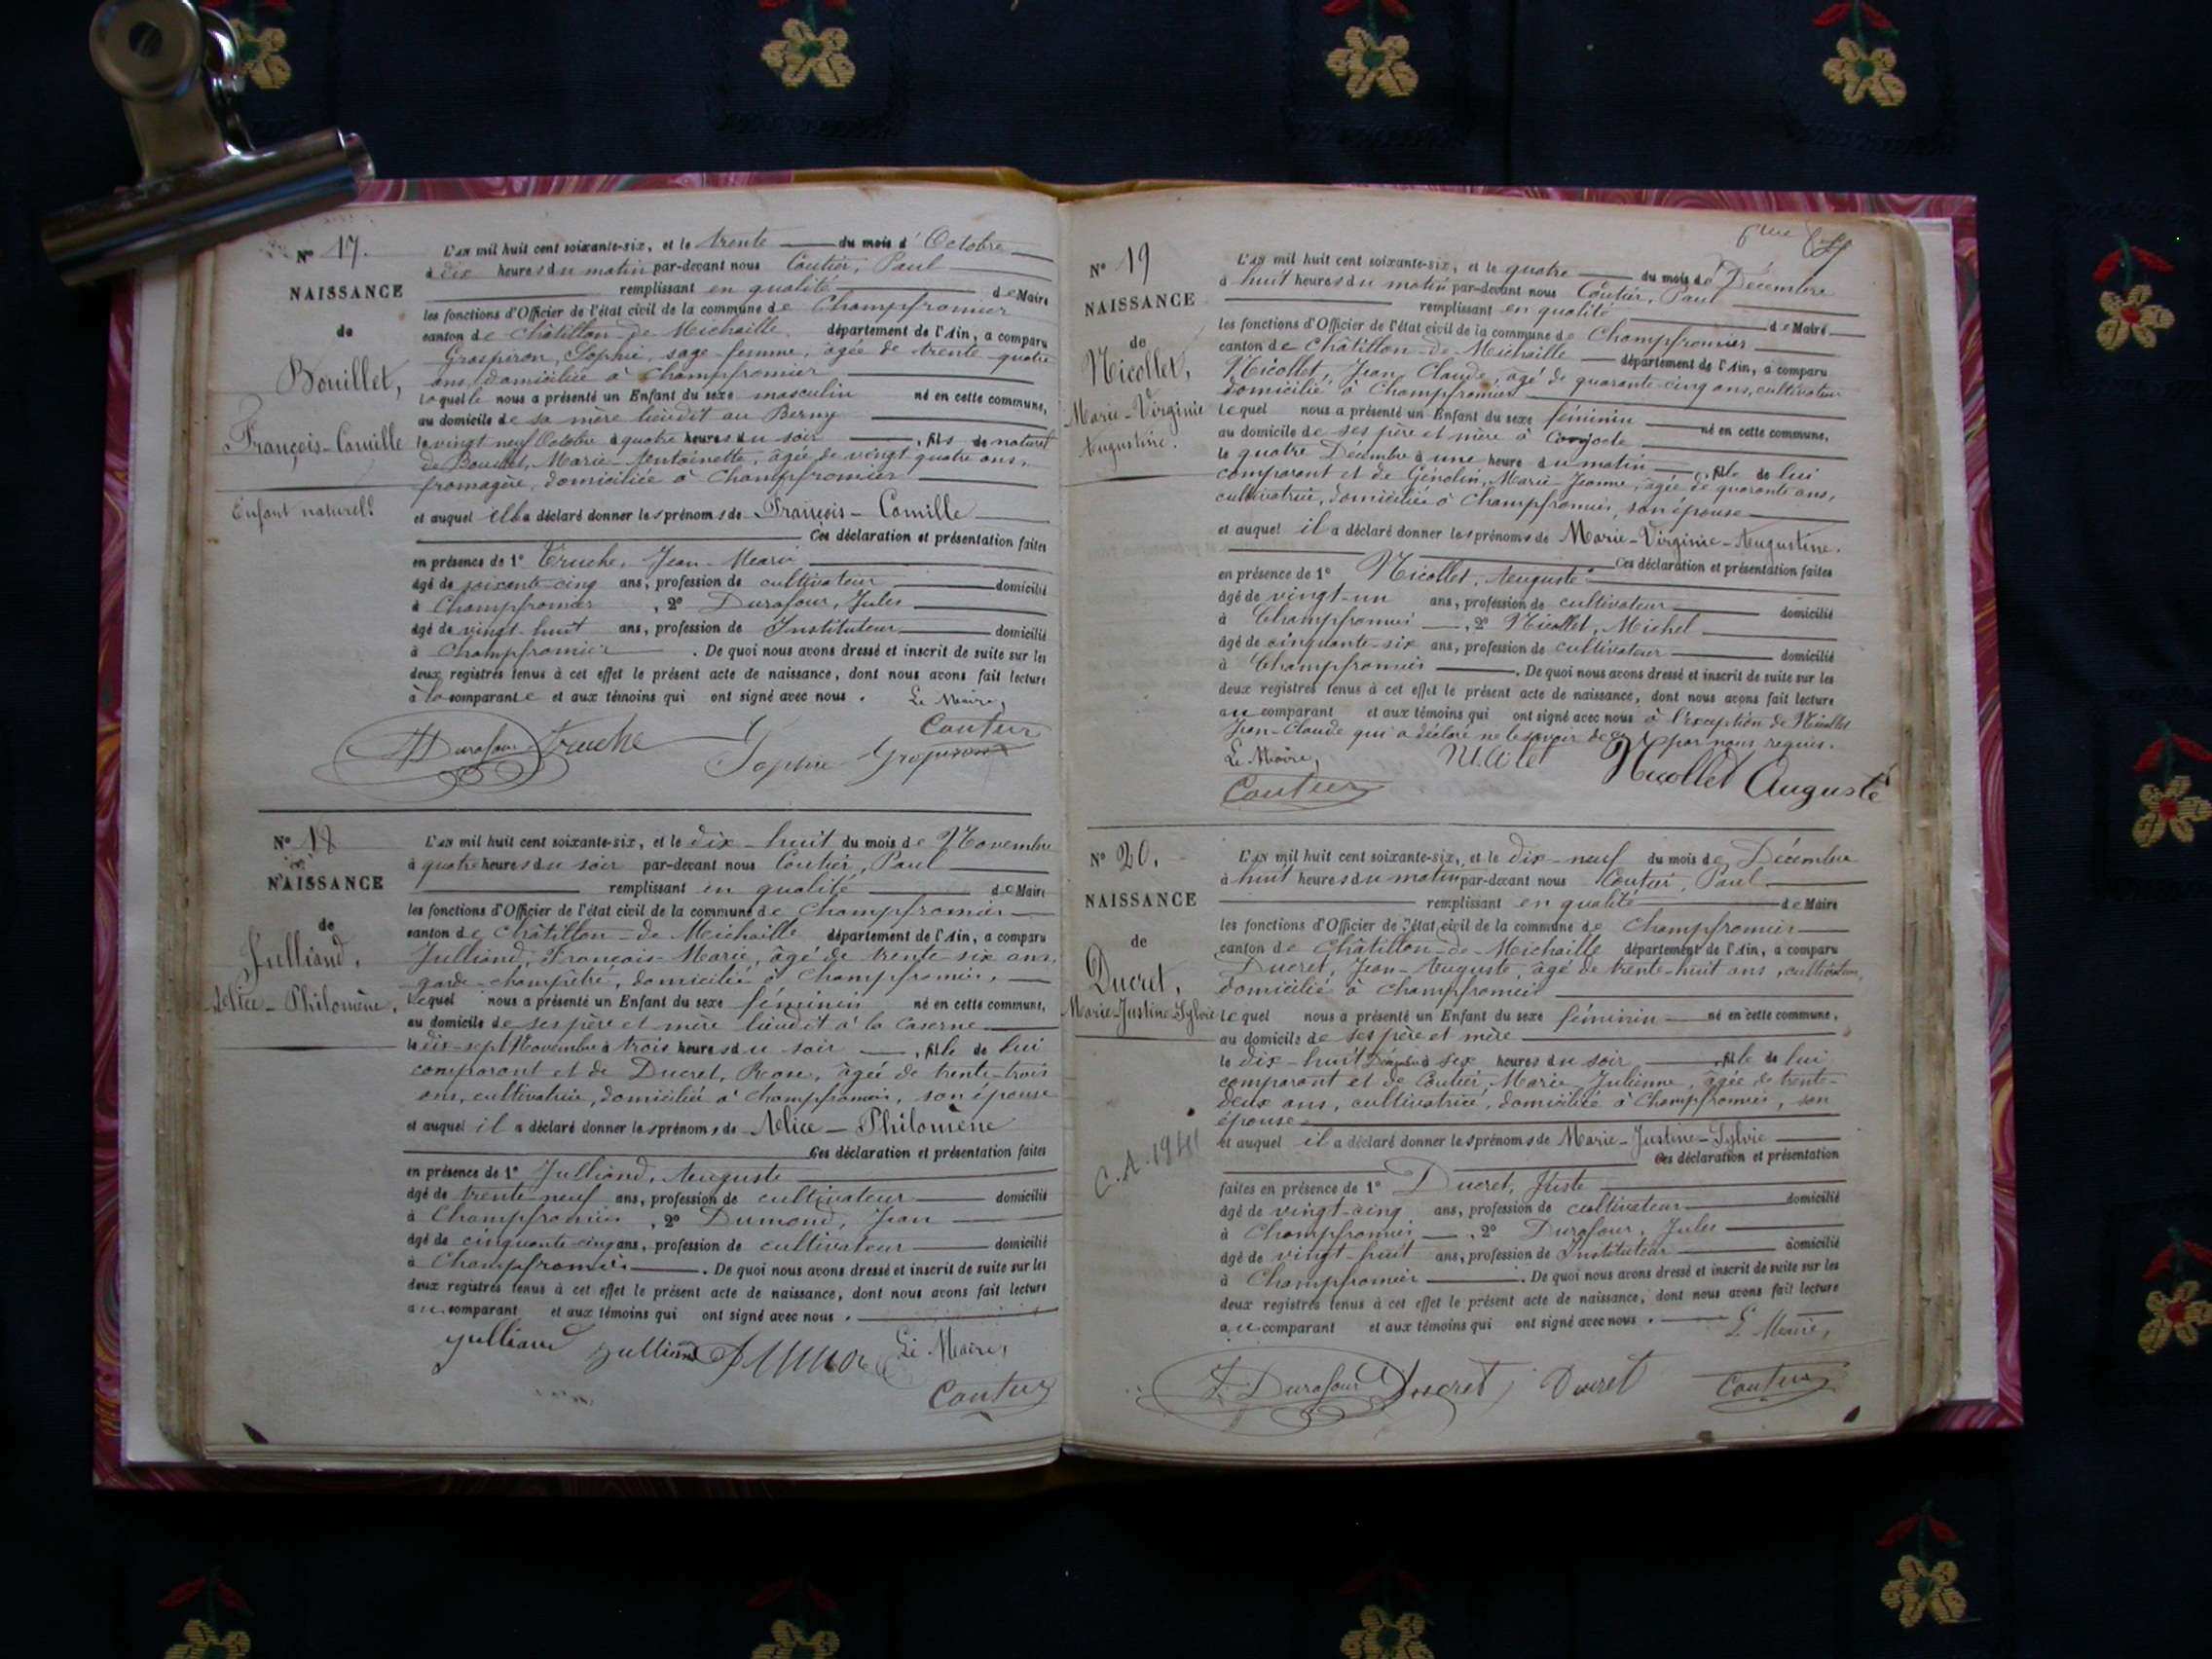 N° 17.
NAISSANCE
de
Bouillet,
François-Camille
Enfant naturel
L'AN mil huit cent soixante-six, et le trente du mois d'Octobre
à dix heures du matin par-devant nous Coutier, Paul
remplissant en qualité de Maire
les fonctions d'Officier de l'état civil de la commune de Champfromier
canton de Châtillon-de-Michaille département de l'Ain, a comparu
Grospiron, Sophie, sage-femme, âgée de trente-quatre
ans, domiciliée à Champfromier
laquelle nous a présenté un Enfant du sexe masculin né en cette commune,
au domicile de sa mère lieudit au Berny
le vingt neuf Octobre à quatre heures du soir, fils de naturel
de Bouillet, Marie-Antoinette, âgée de vingt quatre ans,
fromagère, domiciliée à Champfromier
et auquel elle a déclaré donner les prénoms de François-Camille
Ces déclaration et présentation faites
en présence de 1° Truche, Jean-Marie
âgé de soixante-cinq ans, profession de cultivateur domicilié
à Champfromier, 2° Durafour, Jules
âgé de vingt-huit ans, profession de Instituteur domicilié
à Champfromier. De quoi nous avons dressé et inscrit de suite sur les
deux registres tenus à cet effet le présent acte de naissance, dont nous avons fait lecture
à la comparante et aux témoins qui ont signé avec nous. Le Maire,
Coutier
Durafour Truche Sophie Grospiron
N° 18
NAISSANCE
de
Julliand,
Alice-Philomène,
L'AN mil huit cent soixante-six, et le dix-huit du mois de Novembre
à quatre heures du soir par-devant nous Coutier, Paul
remplissant en qualité de Maire
les fonctions d'Officier de l'état civil de la commune de Champfromier
canton de Châtillon-de-Michaille département de l'Ain, a comparu
Julliand, François-Marie, âgé de trente-six ans,
garde-champêtre, domicilié à Champfromier,
lequel nous a présenté un Enfant du sexe féminin né en cette commune,
au domicile de ses père et mère lieudit à la Caserne
le dix-sept Novembre à trois heures du soir, fille de lui
comparant et de Ducret, Rose, âgée de trente-trois
ans, cultivatrice, domiciliée à Champfromier, son épouse
et auquel il a déclaré donner les prénoms de Alice-Philomène
Ces déclaration et présentation faites
en présence de 1° Julliand, Auguste
âgé de trente-neuf ans, profession de cultivateur domicilié
à Champfromier, 2° Dumond, Jean
âgé de cinquante-cinq ans, profession de cultivateur domicilié
à Champfromier. De quoi nous avons dressé et inscrit de suite sur les
deux registres tenus à cet effet le présent acte de naissance, dont nous avons fait lecture
au comparant et aux témoins qui ont signé avec nous.
Julliand Julliand Le Maire,
Coutier
N° 19
NAISSANCE
de
Nicollet,
Marie-Virginie
Augustine.
L'AN mil huit cent soixante-six, et le quatre du mois de Décembre
à huit heures du matin par-devant nous Coutier, Paul
remplissant en qualité de Maire
les fonctions d'Officier de l'état civil de la commune de Champfromier
canton de Châtillon-de-Michaille département de l'Ain, a comparu
Nicollet, Jean-Claude, âgé de quarante-cinq ans, cultivateur
domicilié à Champfromier
lequel nous a présenté un Enfant du sexe féminin né en cette commune,
au domicile de ses père et mère à
le quatre Décembre à une heure du matin, fille de lui
comparant et de Génolin, Marie-Jeanne, âgée de quarante ans,
cultivatrice, domiciliée à Champfromier, son épouse
et auquel il a déclaré donner les prénoms de Marie-Virginie-Augustine.
Ces déclaration et présentation faites
en présence de 1° Nicollet, Auguste
âgé de vingt-un ans, profession de cultivateur domicilié
à Champfromier, 2° Nicollet, Michel
âgé de cinquante-six ans, profession de cultivateur domicilié
à Champfromier. De quoi nous avons dressé et inscrit de suite sur les
deux registres tenus à cet effet le présent acte de naissance, dont nous avons fait lecture
au comparant et aux témoins qui ont signé avec nous à l'exception de Nicollet
Jean-Claude qui a déclaré ne le savoir de ce par nous requis.
Le Maire,
Coutier Nicollet Auguste
N° 20.
NAISSANCE
de
Ducret,
Marie-Justine-Sylvie
C.A. 1941
L'AN mil huit cent soixante-six, et le dix-neuf du mois de Décembre
à huit heures du matin par-devant nous Coutier, Paul
remplissant en qualité de Maire
les fonctions d'Officier de l'état civil de la commune de Champfromier
canton de Châtillon-de-Michaille département de l'Ain, a comparu
Ducret, Jean-Auguste, âgé de trente-huit ans, cultivateur,
domicilié à Champfromier
lequel nous a présenté un Enfant du sexe féminin né en cette commune,
au domicile de ses père et mère
le dix-huit Décembre à six heures du soir, fille de lui
comparant et de Coutier, Marie-Julienne, âgée de trente-
deux ans, cultivatrice, domiciliée à Champfromier, son
épouse
et auquel il a déclaré donner les prénoms de Marie-Justine-Sylvie
Ces déclaration et présentation
faites en présence de 1° Ducret, Juste
âgé de vingt-cinq ans, profession de cultivateur domicilié
à Champfromier, 2° Durafour, Jules
âgé de vingt-huit ans, profession de Instituteur domicilié
à Champfromier. De quoi nous avons dressé et inscrit de suite sur les
deux registres tenus à cet effet le présent acte de naissance, dont nous avons fait lecture
au comparant et aux témoins qui ont signé avec nous. Le Maire,
J. Durafour Ducret Ducret Coutier